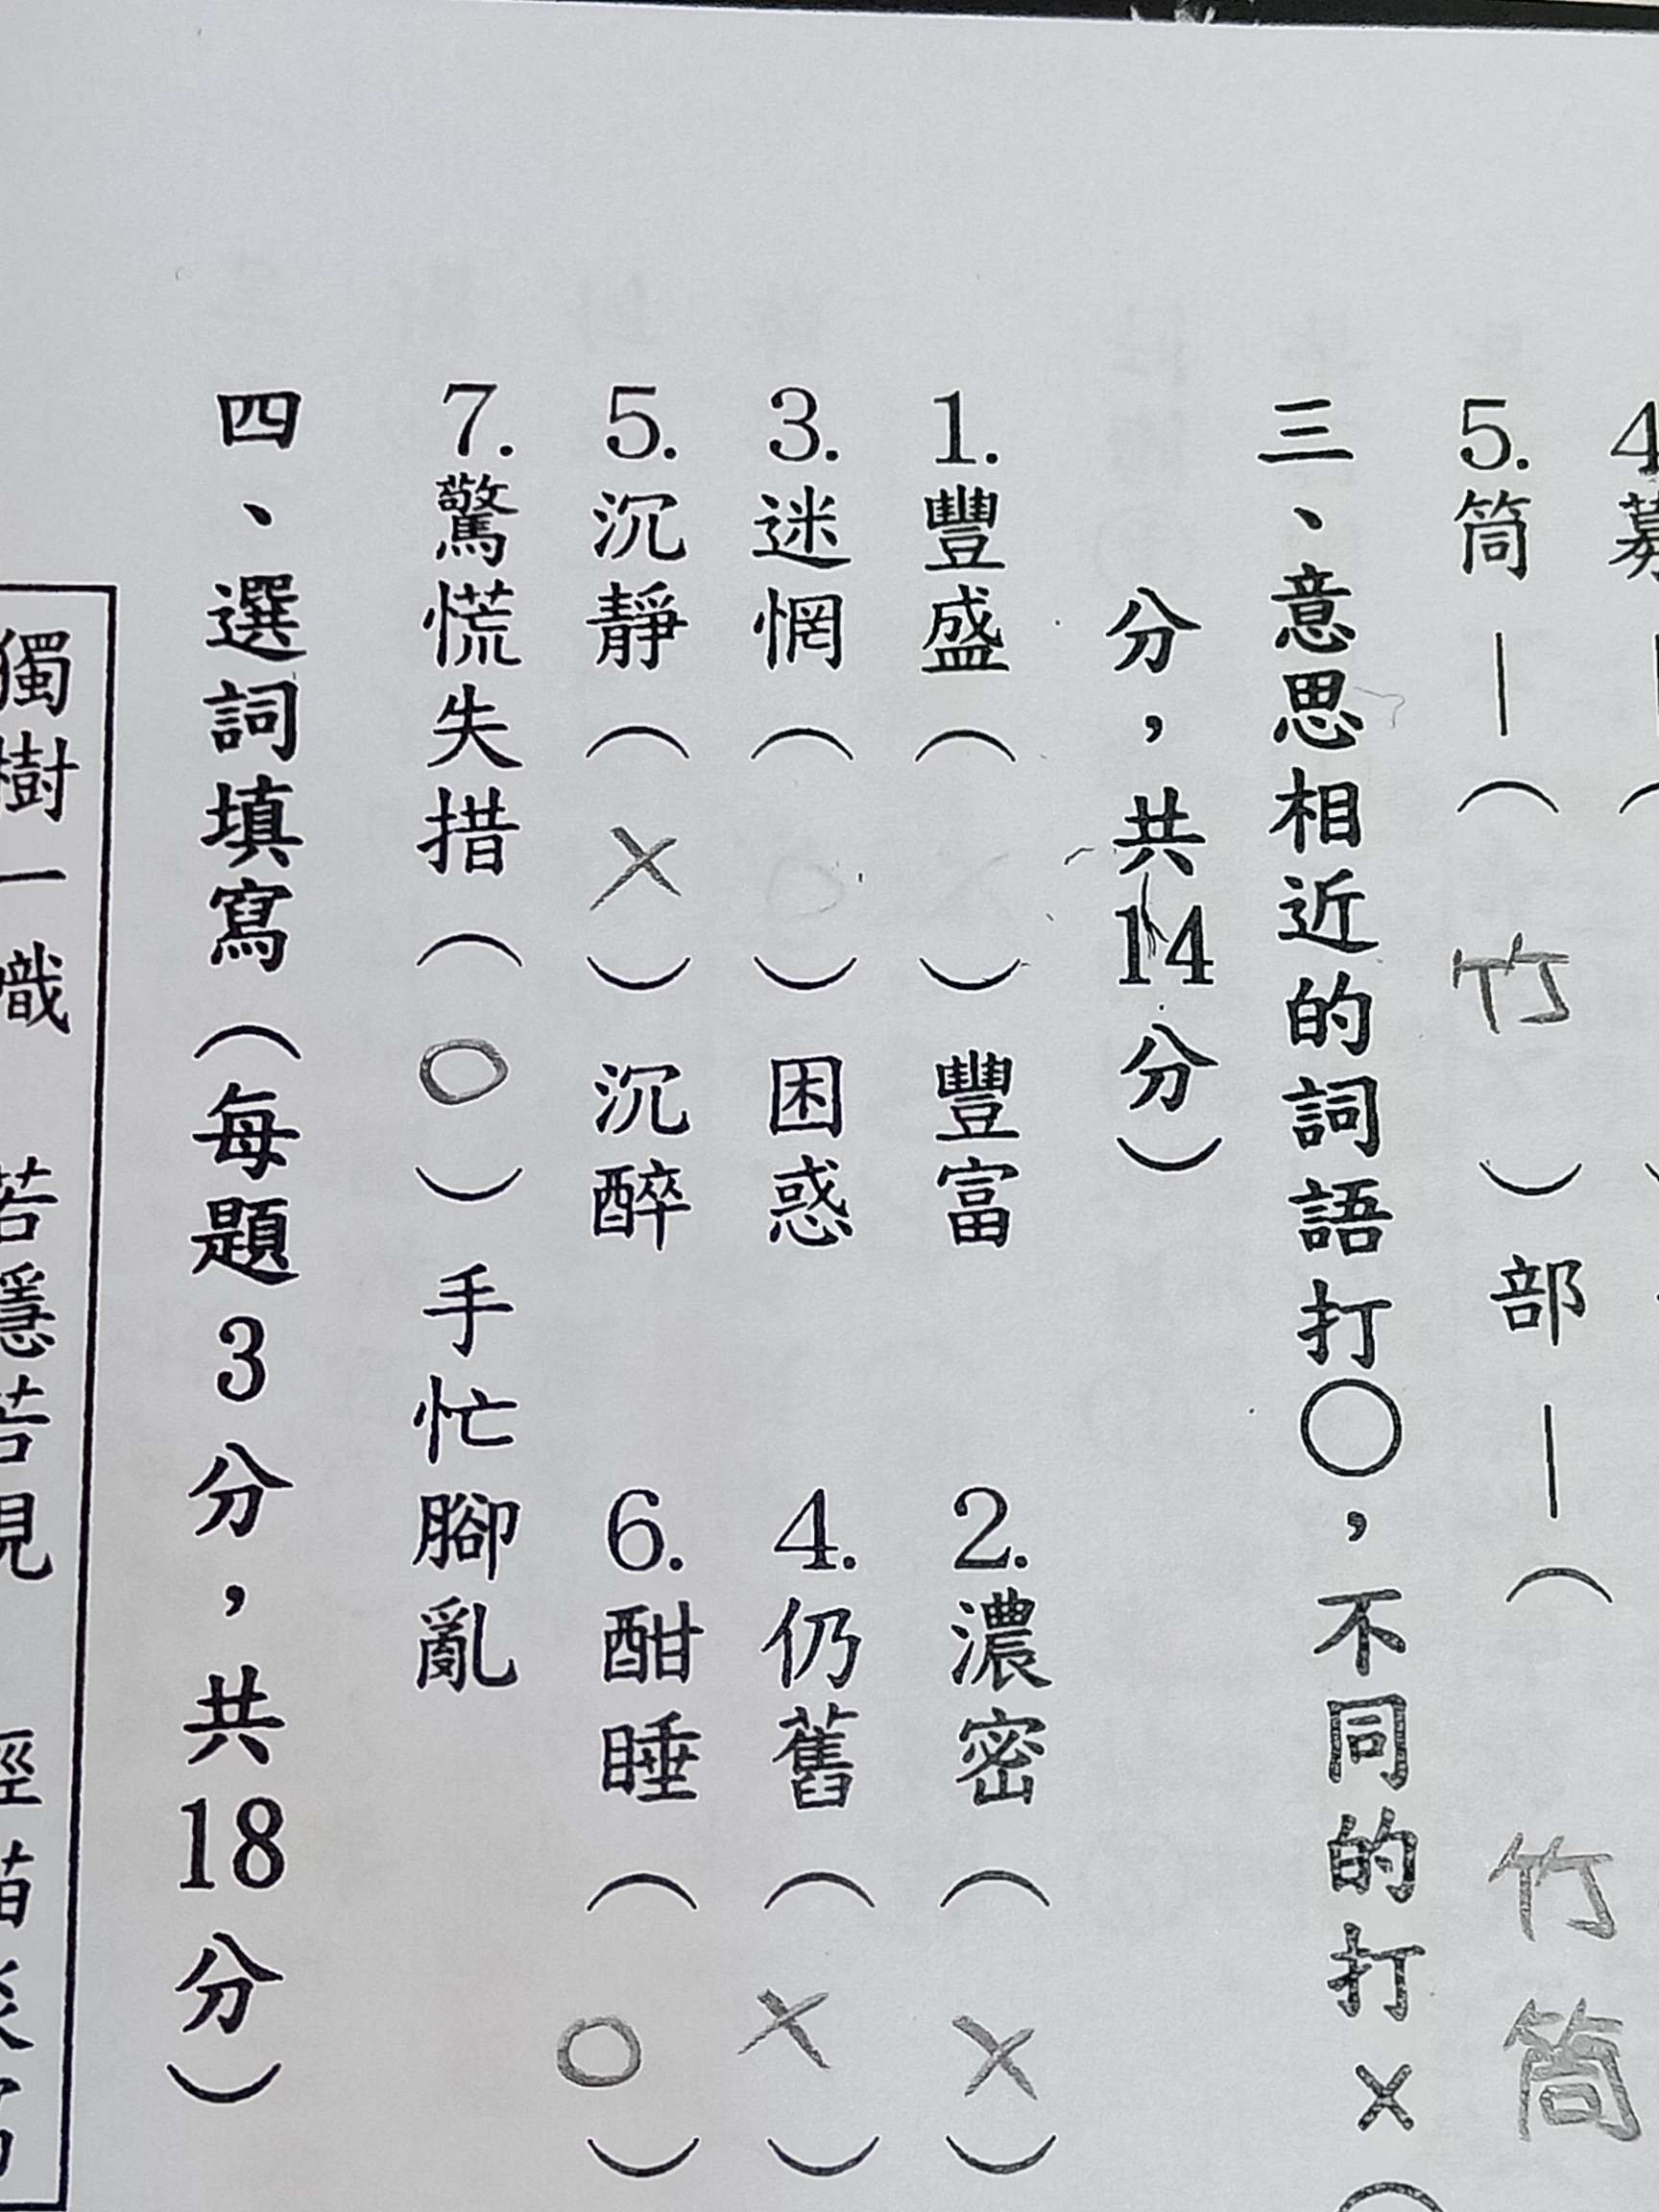 5.筒—(竹)部—(竹筒
三、意思相近的詞語打○,不同的打×(
分,共14分)
1.豐盛( )豐富 2.濃密(×)
3.迷惘(○)困惑 4.仍舊(×)
5.沉靜(×)沉醉 6.酣睡(○)
7.驚慌失措(○)手忙腳亂
四、選詞填寫(每題3分,共18分)
獨樹一幟 若隱若現 輕描淡寫